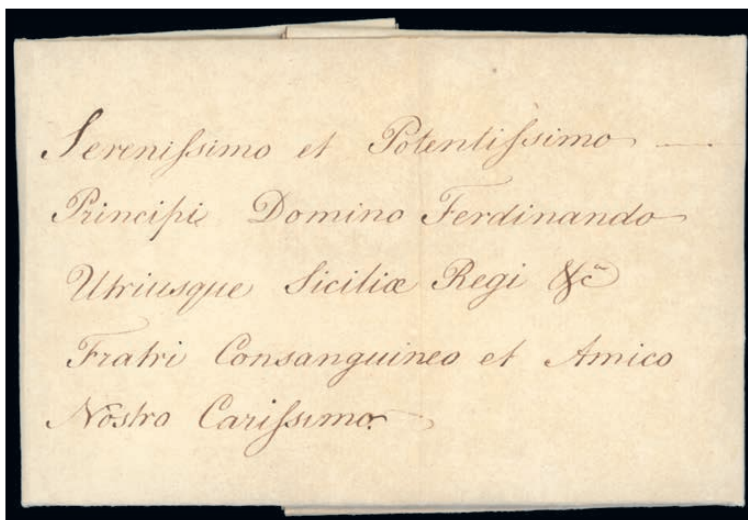 Serenissimo et Potentissimo
Principi Domino Ferdinando
Utriusque Siciliæ Regi &c
Fratri Consanguineo et Amico
Nostro Carissimo.